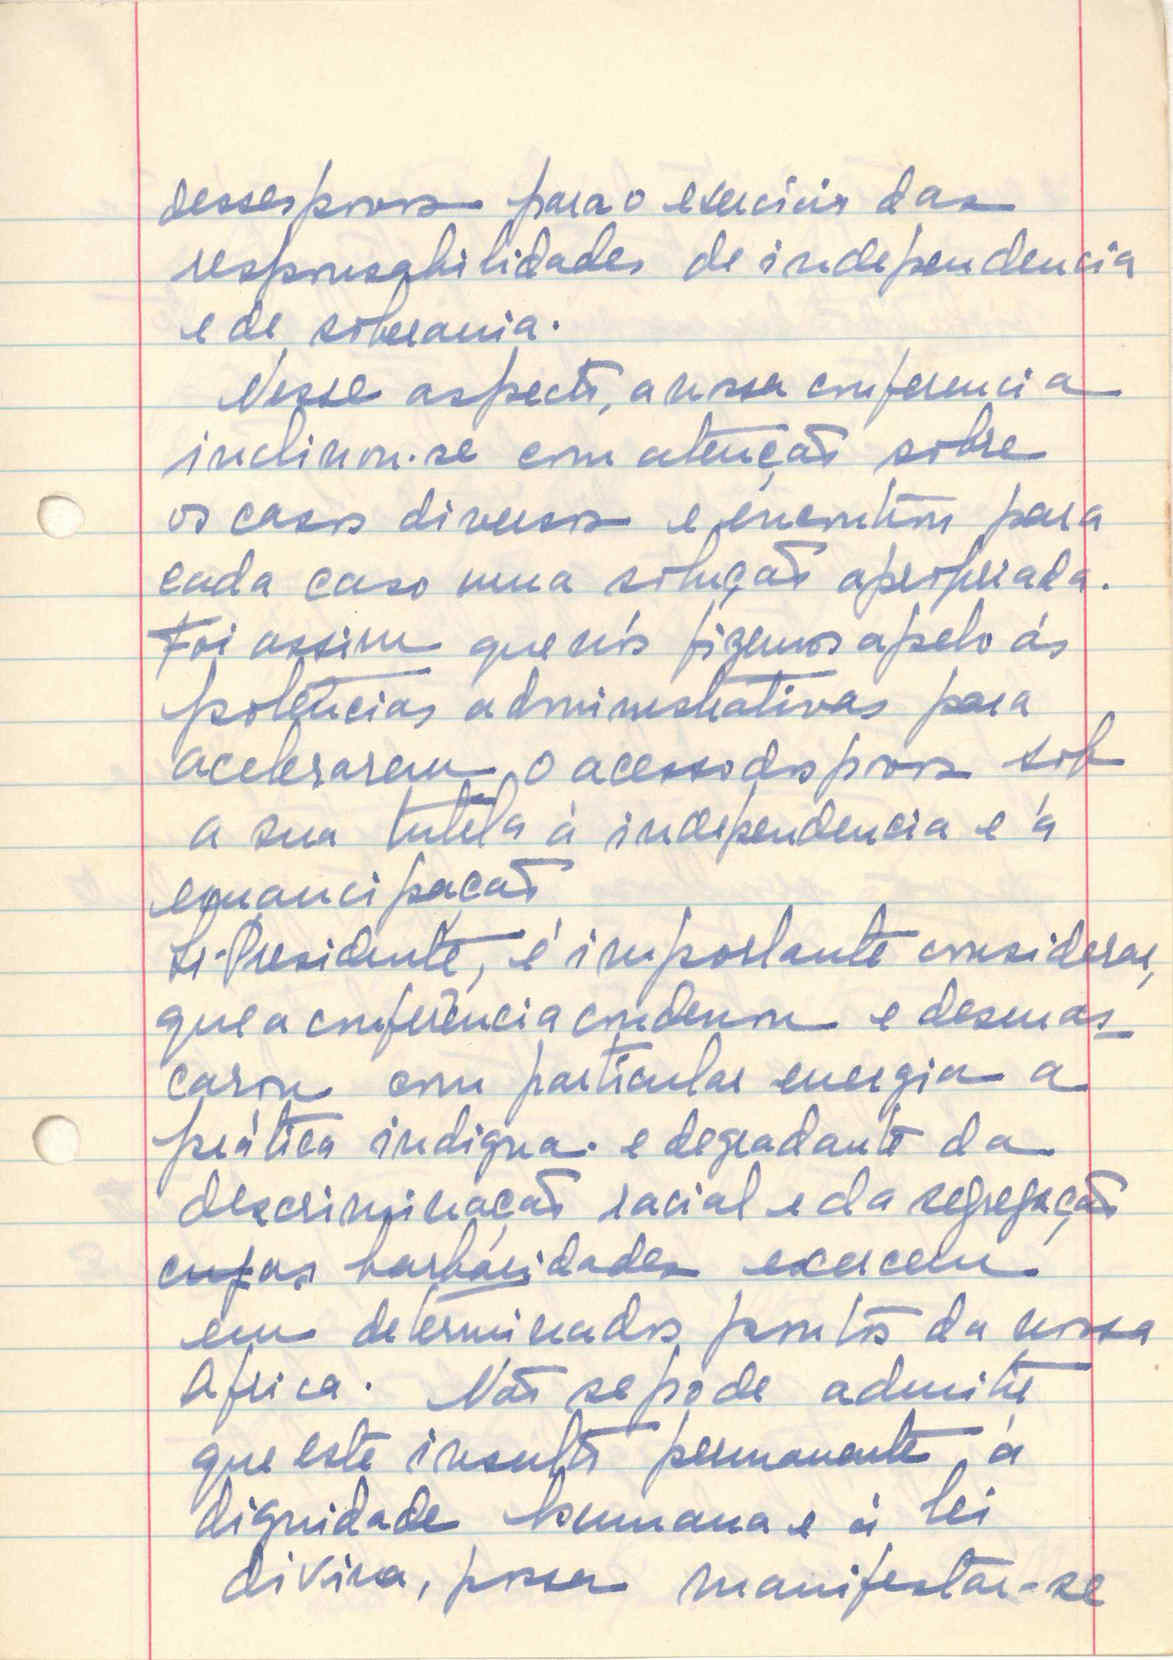 desses povos para o exercicio das
responsabilidades de independencia
e de soberania.
Nesse aspecto, a nossa conferencia
inclinou-se com atenção sobre
os casos diversos e encontrou para
cada caso uma solução apropriada.
Foi assim que nós fizemos apelo ás
potências administrativas para
acelerarem o acesso dos povos sob
a sua tutela á independencia e á
emancipação
Sr. Presidente, é importante considerar,
que a conferência condenou e desmas-
carou com particular energia a
prática indigna e degradante da
descriminação racial e da segregação
cujas barbáridades exercem
em determinados pontos da nossa
Africa. Não se pode admitir
que este insulto permanente á
dignidade humana e á lei
divina, possa manifestar-se